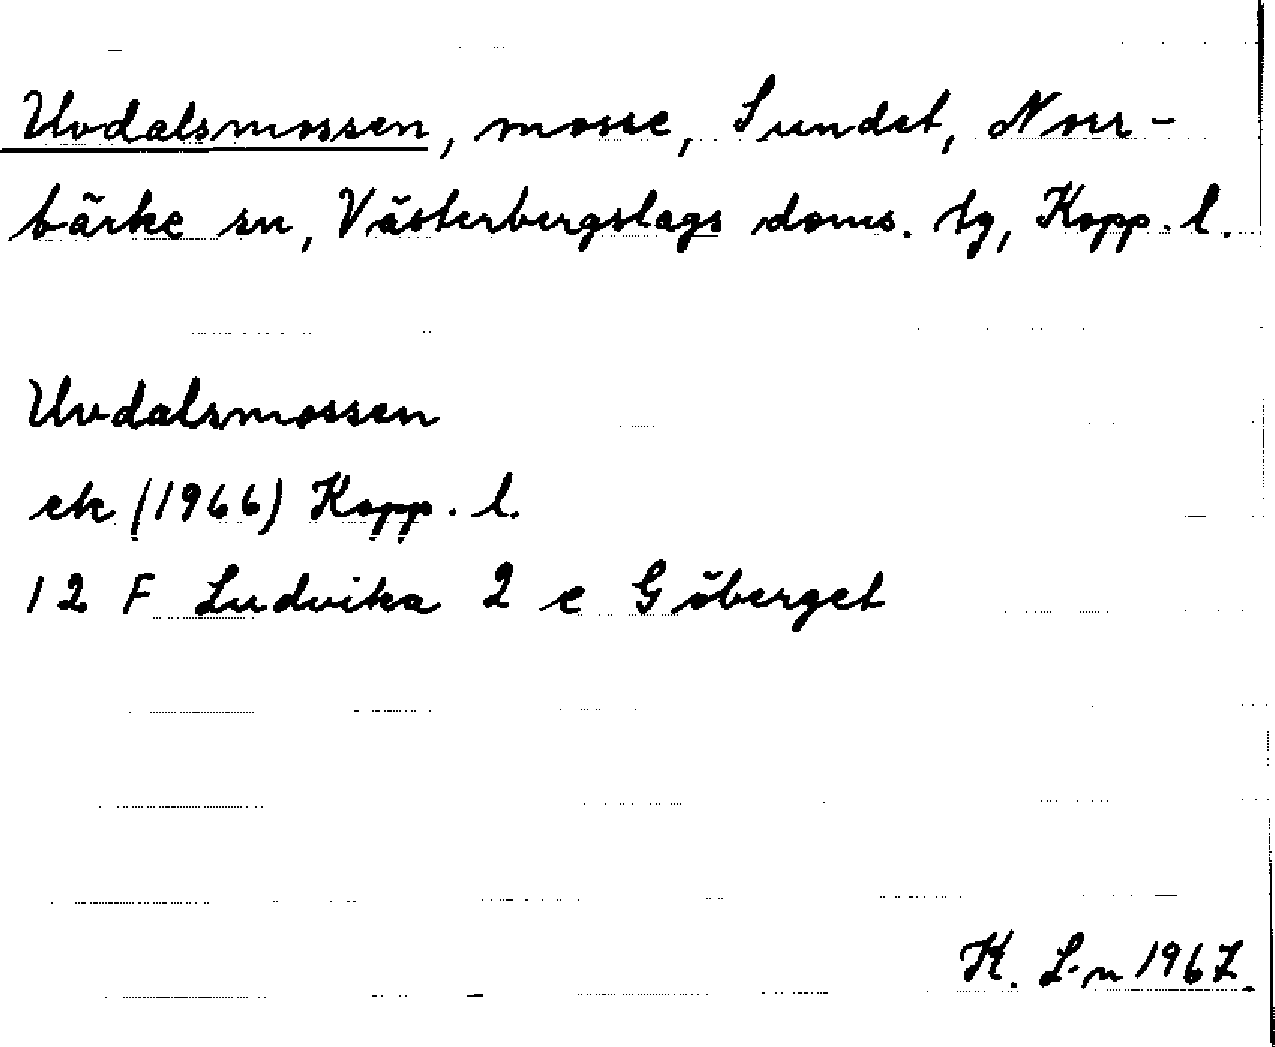 Uvdalsmossen, mosse, Sundet, Norr-
bärke sn, Västerbergslags doms. tg, Kopp. l.
Uvdalsmossen
ek (1966) Kopp. l.
12 F Ludvika 2 e Göberget
K. L-n 1967.